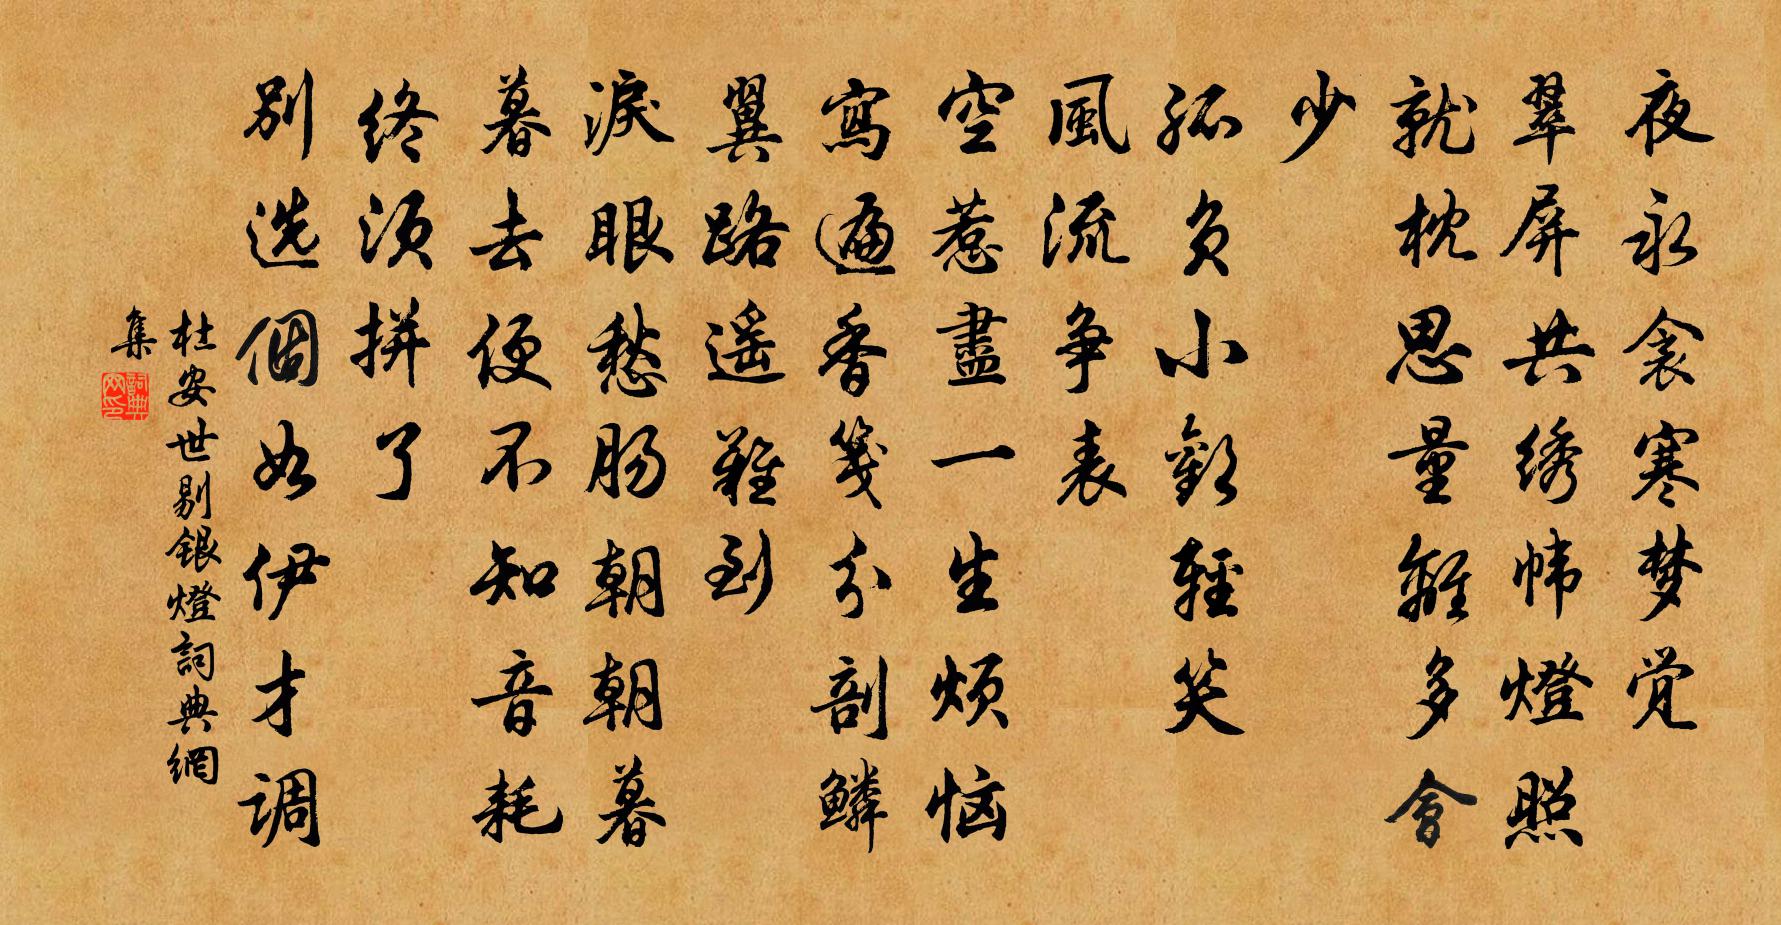 夜永衾寒梦觉
翠屏共绣帏燈照
就枕思量離多會
少
孤负小歡輕笑
風流争表
空惹盡一生烦恼
寫遍香笺分剖鱗
翼路遥難到
淚眼愁肠朝朝暮
暮去便不知音耗
终须拼了
别选個如伊才调
杜安世剔銀燈詞典網
集
詞典網印